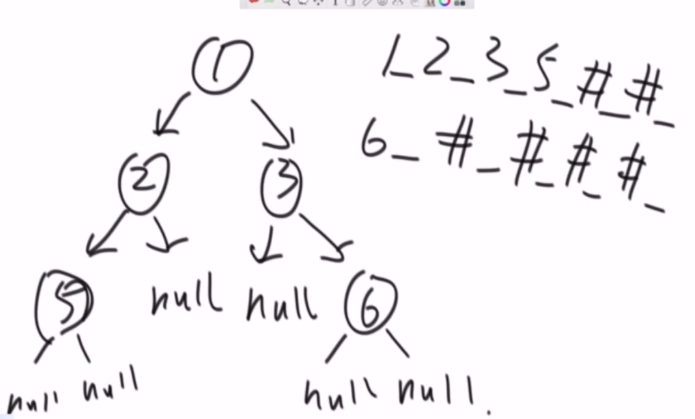 1
1_2_3_5_#_#_
6_#_#_#_#_
2 3
5 null null 6
null null null null.